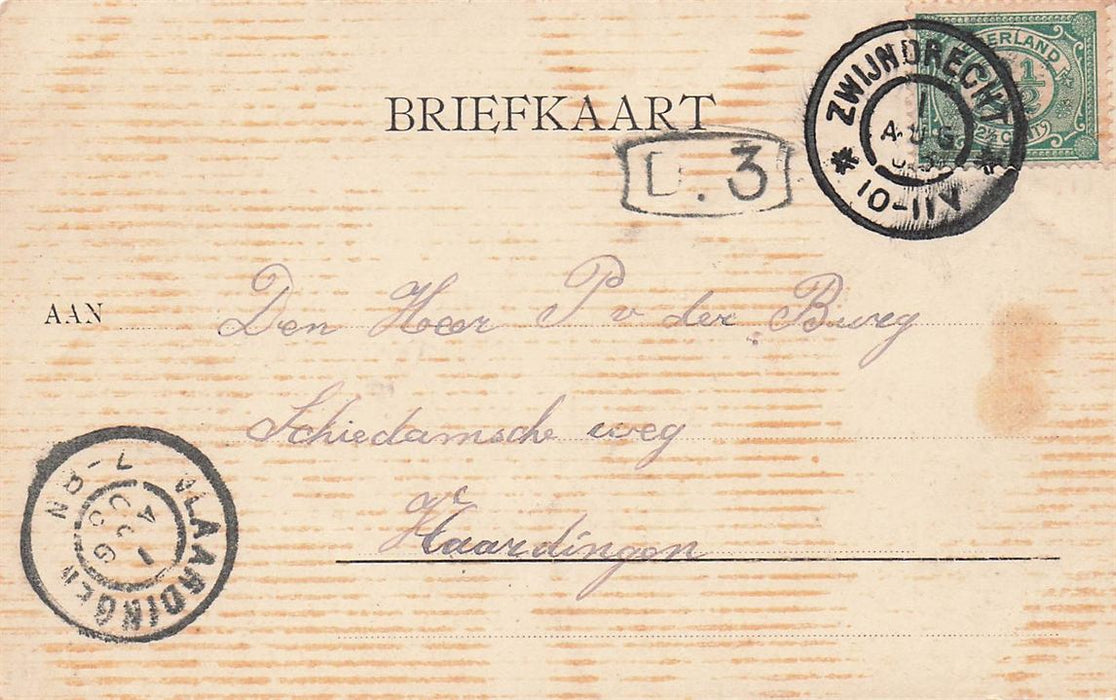 BRIEFKAART
ZWIJNDRECHT
1
AUG
10-11V
NEDERLAND
2½ CENT
3
AAN Den Heer P v der Burg
Schiedamsche weg
Vlaardingen
VLAARDINGEN
7-8N
1
AUG